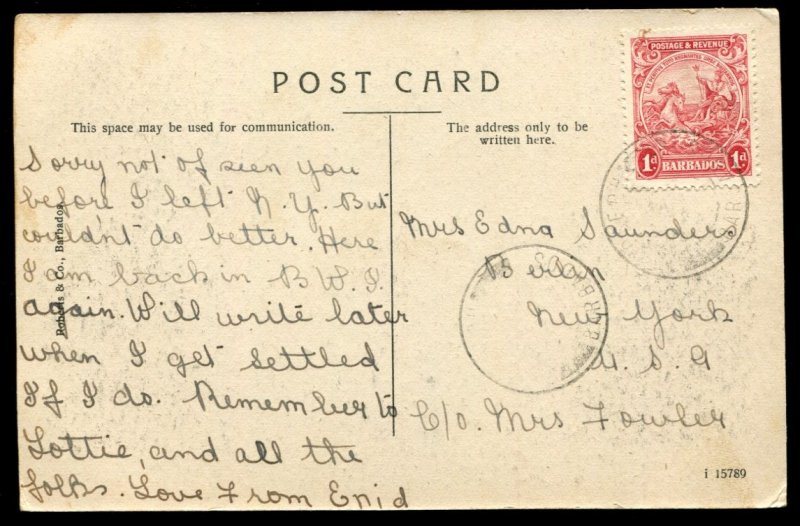 POST CARD
This space may be used for communication.
The address only to be
written here.
Sorry not of seen you
before I left N. Y. But
couldn't do better. Here
I am back in B W. I
again. Will write later
when I get settled
If I do. Remember to
Lottie, and all the
folks. Love From Enid
Roberts & Co., Barbados.
Mrs Edna Saunders
Berlin
New York
U. S. A
C/o. Mrs Fowler
i 15789
POSTAGE & REVENUE
1d BARBADOS 1d
BARBADOS